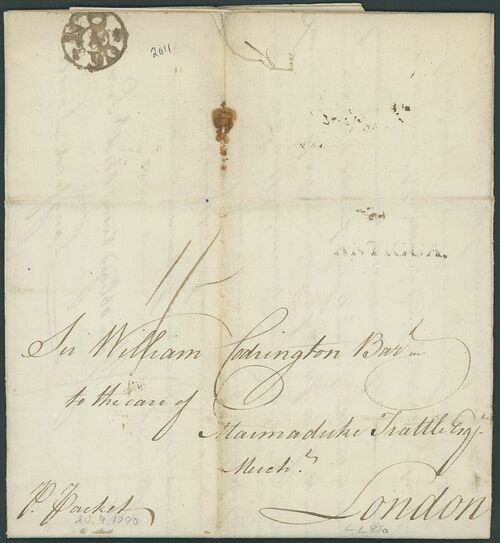 2011
Sir William Codrington Bart.
to the care of
Marmaduke Trattle Esqr.
Mercht.
London
P. Packet
20.4.1790